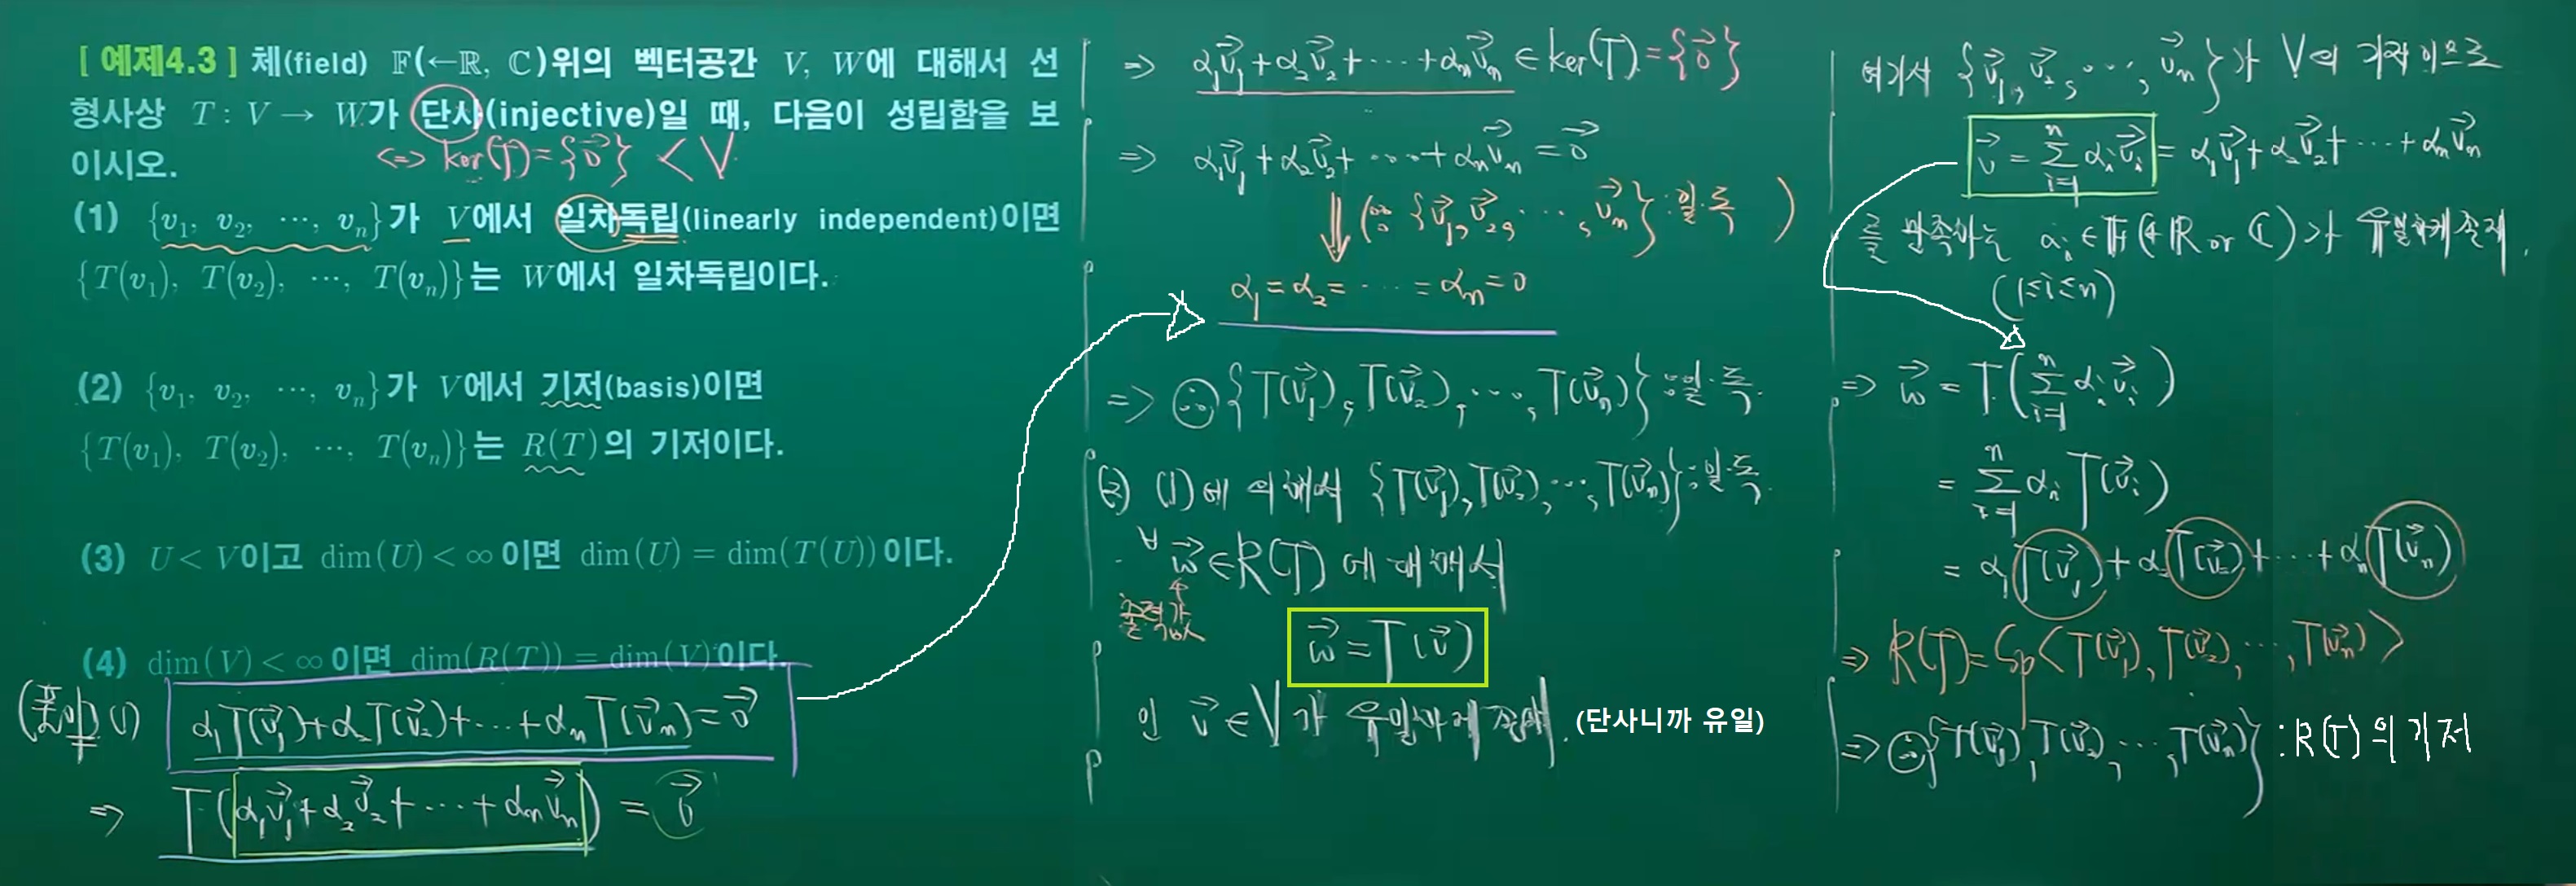 [ 예제4.3 ] 체(field) 𝔽(←ℝ, ℂ)위의 벡터공간 V, W에 대해서 선
형사상 T : V → W가 단사(injective)일 때, 다음이 성립함을 보
이시오.
<=> ker(T) = {0⃗} < V
(1) {v₁, v₂, ⋯, vₙ}가 V에서 일차독립(linearly independent)이면
{T(v₁), T(v₂), ⋯, T(vₙ)}는 W에서 일차독립이다.
(2) {v₁, v₂, ⋯, vₙ}가 V에서 기저(basis)이면
{T(v₁), T(v₂), ⋯, T(vₙ)}는 R(T)의 기저이다.
(3) U < V이고 dim(U) < ∞이면 dim(U) = dim(T(U))이다.
(4) dim(V) < ∞이면 dim(R(T)) = dim(V)이다.
(풀이) (1) α₁T(v⃗₁)+α₂T(v⃗₂)+⋯+αₙT(v⃗ₙ)=0⃗
=> T(α₁v⃗₁+α₂v⃗₂+⋯+αₙv⃗ₙ) = 0⃗
=> α₁v⃗₁+α₂v⃗₂+⋯+αₙv⃗ₙ ∈ ker(T)={0⃗}
=> α₁v⃗₁+α₂v⃗₂+⋯+αₙv⃗ₙ=0⃗
⇓ (∵ {v⃗₁, v⃗₂, ⋯, v⃗ₙ} : 일.독 )
α₁=α₂=⋯=αₙ=0
=> ∴ {T(v⃗₁), T(v⃗₂), ⋯, T(v⃗ₙ)} : 일.독.
(2) (1)에 의해서 {T(v⃗₁), T(v⃗₂), ⋯, T(v⃗ₙ)} : 일.독.
∀w⃗∈R(T)에 대해서
출력값
w⃗=T(v⃗)
인 v⃗∈V가 유일하게 존재. (단사니까 유일)
여기서 {v⃗₁, v⃗₂, ⋯, v⃗ₙ}가 V의 기저이므로
v⃗ = ∑ᵢ₌₁ⁿ αᵢv⃗ᵢ = α₁v⃗₁+α₂v⃗₂+⋯+αₙv⃗ₙ
를 만족하는 αᵢ∈𝔽(←ℝ or ℂ)가 유일하게 존재.
(1≤i≤n)
=> w⃗ = T(∑ᵢ₌₁ⁿ αᵢv⃗ᵢ)
= ∑ᵢ₌₁ⁿ αᵢT(v⃗ᵢ)
= α₁T(v⃗₁)+α₂T(v⃗₂)+⋯+αₙT(v⃗ₙ)
=> R(T)=Sp<T(v⃗₁), T(v⃗₂), ⋯, T(v⃗ₙ)>
=> ∴ {T(v⃗₁), T(v⃗₂), ⋯, T(v⃗ₙ)} : R(T)의 기저